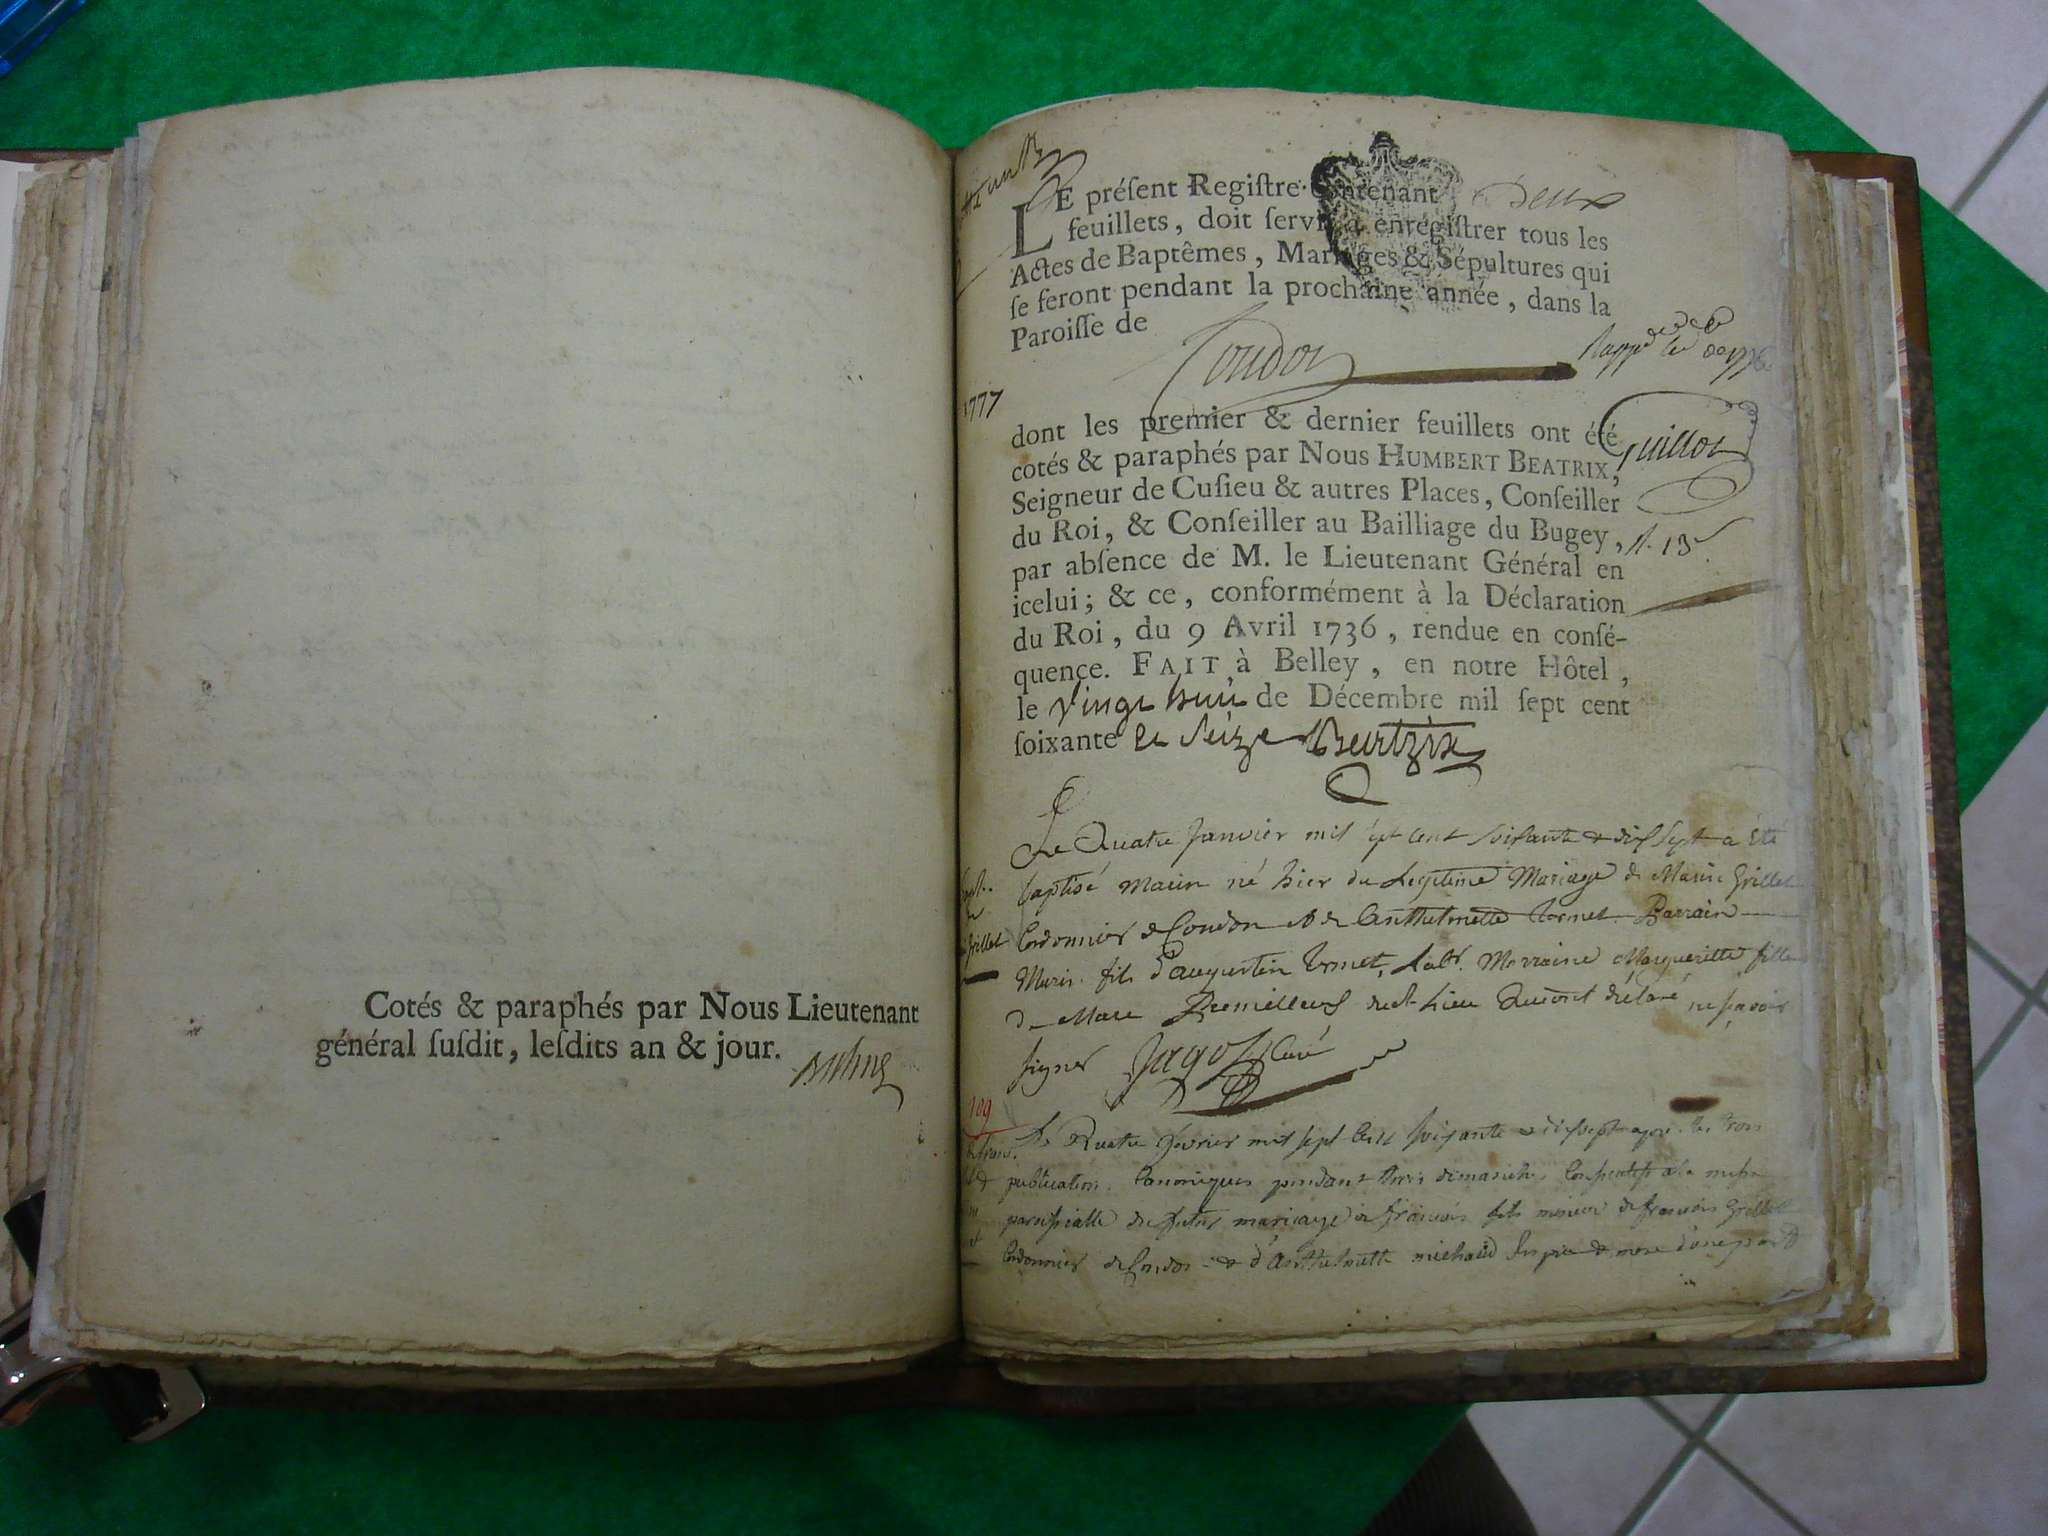 Cotés & paraphés par Nous Lieutenant
général susdit, lesdits an & jour.
LE présent Registre Contenant deux
feuillets, doit servir à enrégistrer tous les
Actes de Baptêmes, Mariages & Sépultures qui
se feront pendant la prochaine année, dans la
Paroisse de
Condon
1777
dont les premier & dernier feuillets ont été
cotés & paraphés par Nous HUMBERT BEATRIX,
Seigneur de Cusieu & autres Places, Conseiller
du Roi, & Conseiller au Bailliage du Bugey,
par absence de M. le Lieutenant Général en
icelui; & ce, conformément à la Déclaration
du Roi, du 9 Avril 1736, rendue en consé-
quence. FAIT à Belley, en notre Hôtel,
le vingt huit de Décembre mil sept cent
soixante et seize Beatrix
Guillot
Le Quatre Janvier mil sept cent soixante & dix sept a été
baptisé Marin né hier du légitime Mariage de Marin Grillet
Cordonnier de Condon et de Anthelmette Tornet Parrain
Marin fils d'augustin Tornet, Labr. Marraine Margueritte fille
de Marc dud. Lieu Qui ont déclaré ne savoir
signer Jagot Curé
109
Le Quatre février mil sept cent soixante & dix sept apres les trois
publications Canoniques pendant trois dimanches Consecutifs a la messe
paroissialle du futur mariage de françois fils mineur de françois Grillet
Cordonnier de Condon & d'Anthelmette michaud ses pere & mere d'une part